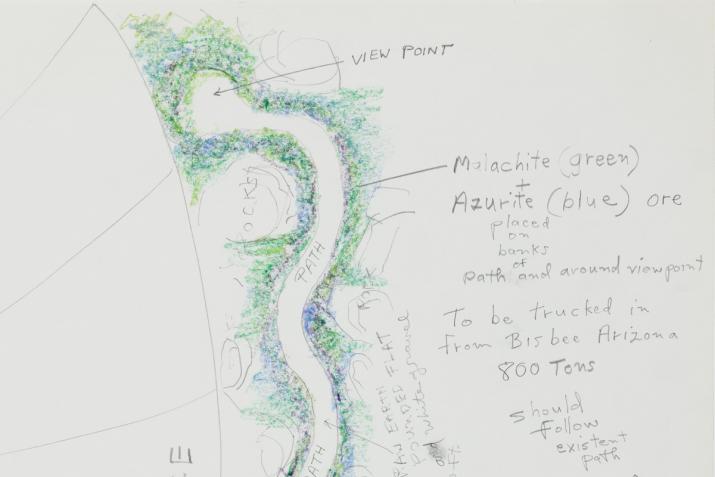 VIEW POINT
Malachite (green)
+
Azurite (blue) ore
placed
on
banks
of
path and around viewpoint
To be trucked in
from Bisbee Arizona
800 Tons
should
follow
existent
path
OCKS
PATH
EARTH FLAT
POUNDED
white gravel
ATH